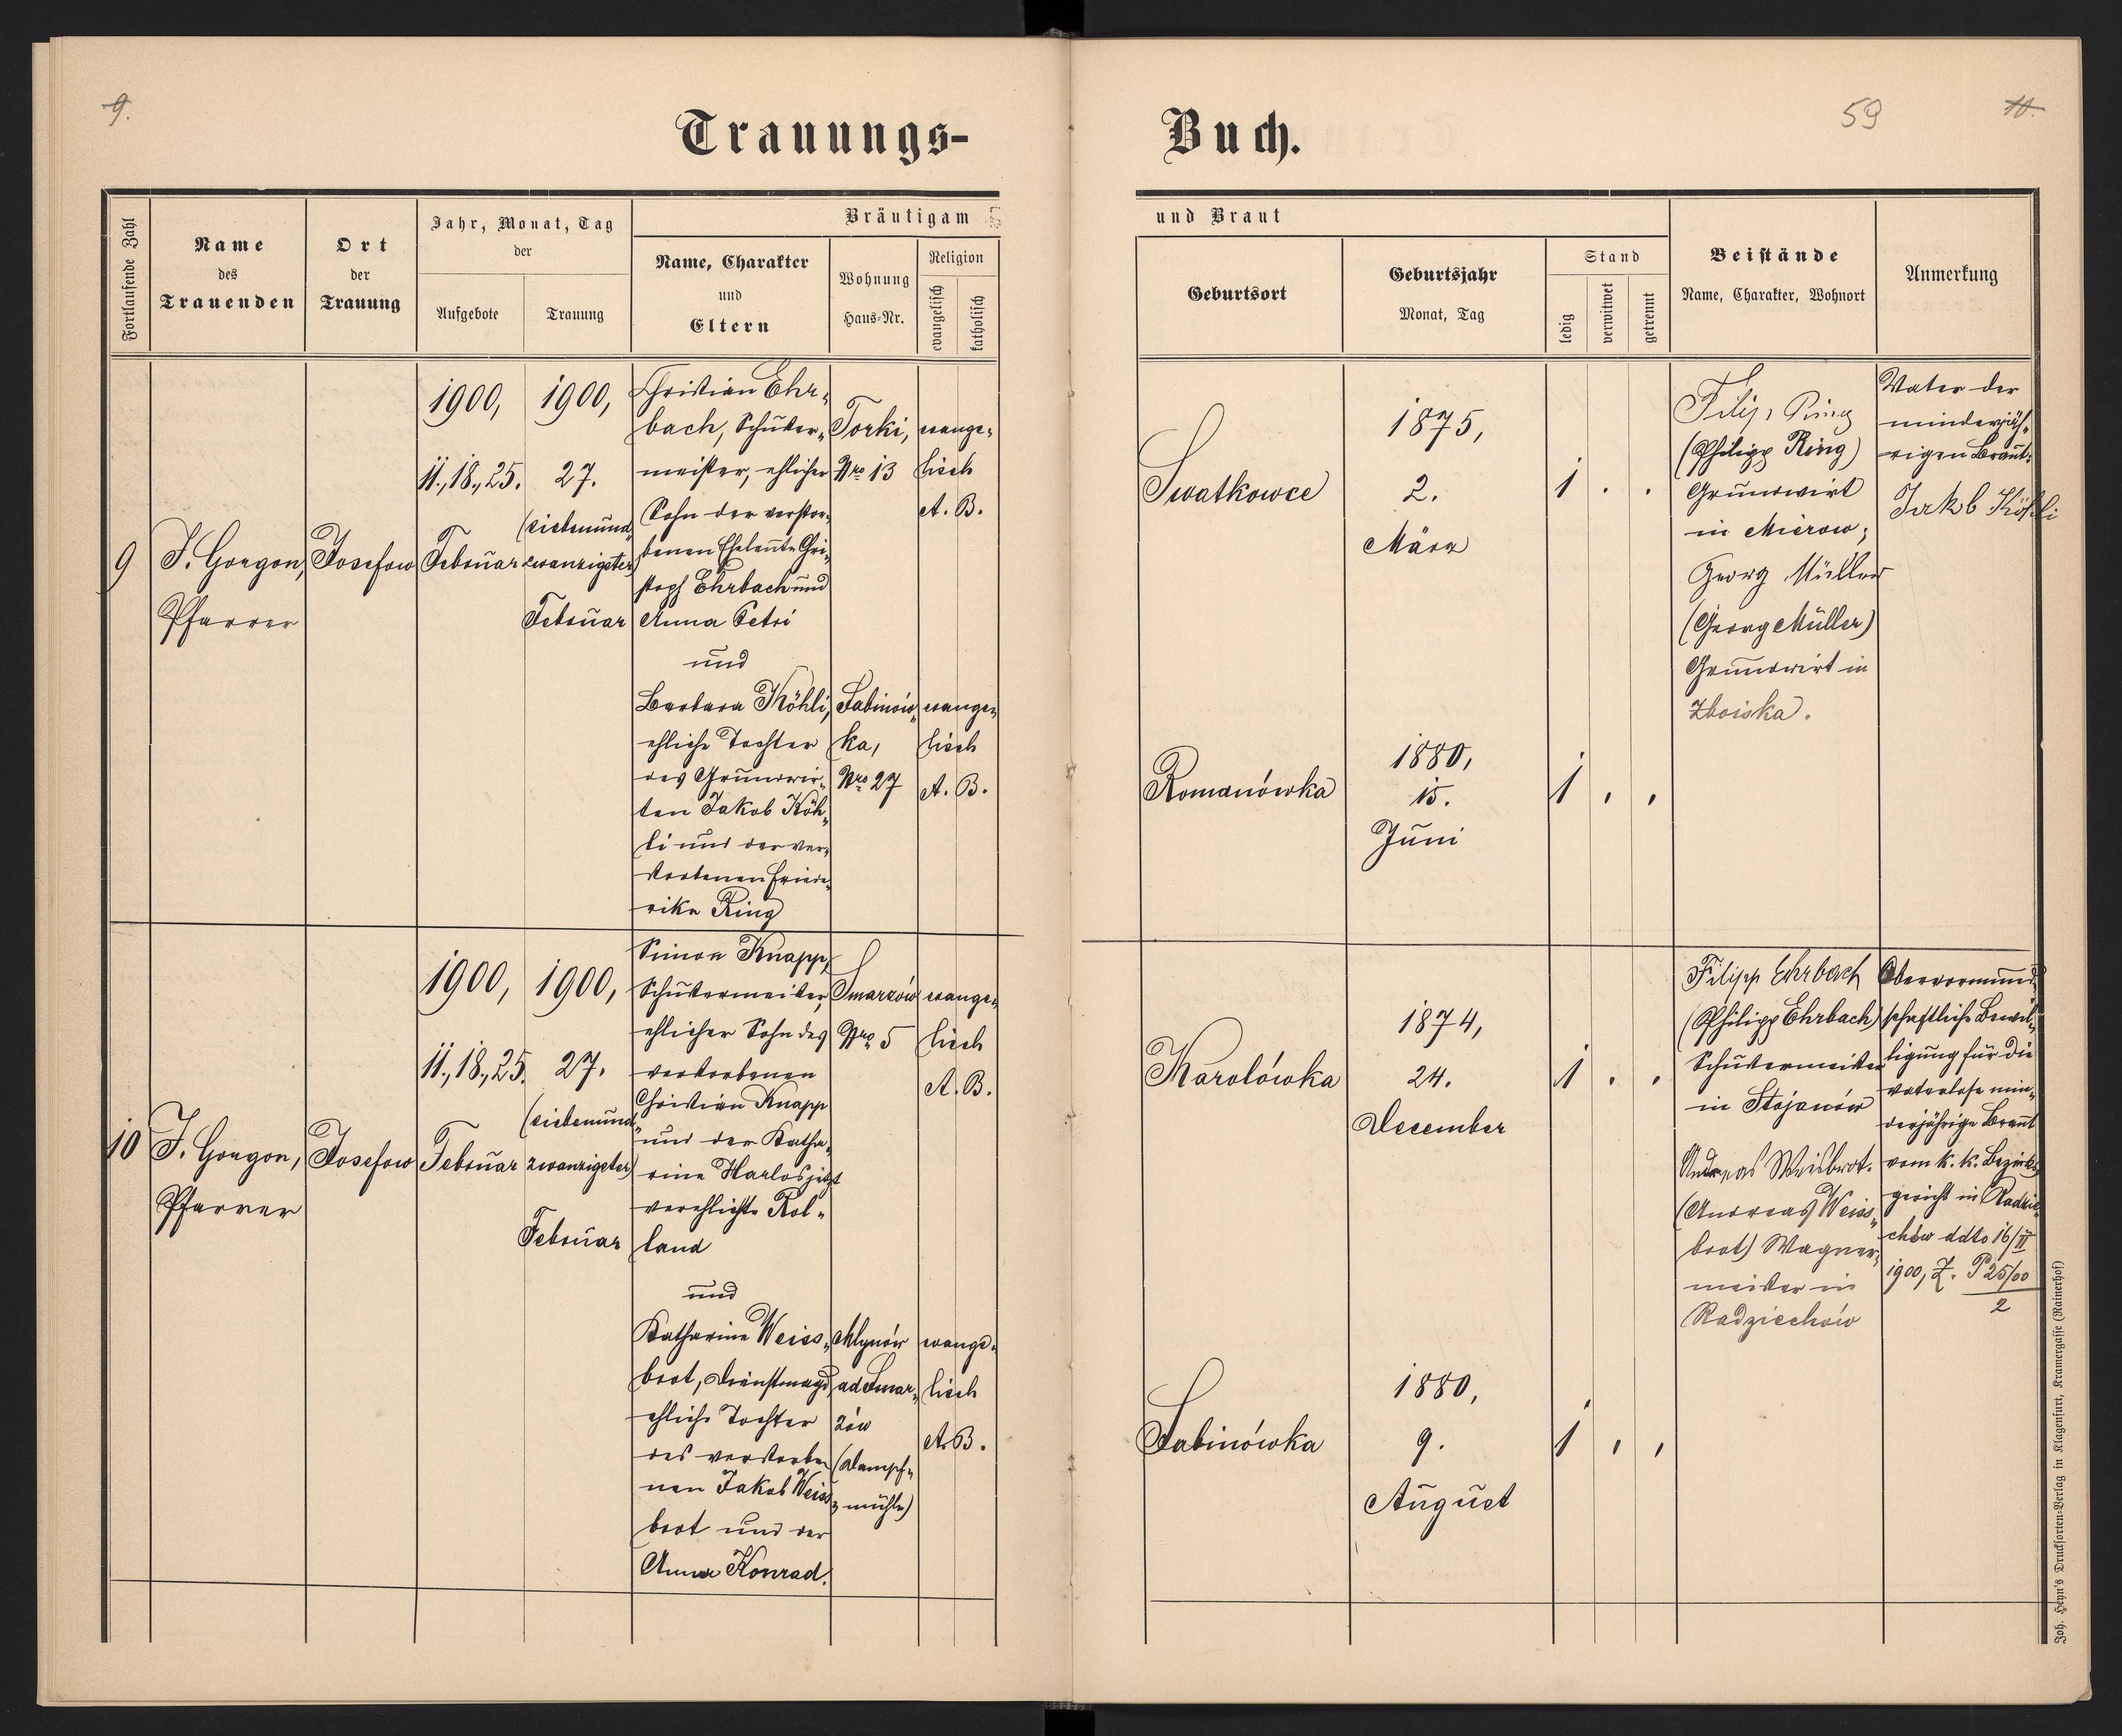 9.
Trauungs-
Buch.
59
11.
Fortlaufende Zahl
Name
des
Trauenden
Ort
der
Trauung
Jahr, Monat, Tag
der
Aufgebote
Trauung
Bräutigam
Name, Charakter
und
Eltern
Wohnung
Haus-Nr.
Religion
evangelisch
katholisch
und Braut
Geburtsort
Geburtsjahr
Monat, Tag
Stand
ledig
verwitwet
getrennt
Beistände
Name, Charakter, Wohnort
Anmerkung
9
J. Gorgon,
Pfarrer
Josefow
1900,
11., 18., 25.
Februar
1900,
27.
(siebenund
zwanzigster)
Februar
Christian Ehr-
bach, Schuster-
meister, ehlicher
Sohn der verstor-
benen Eheleute Chri-
stoph Ehrbach und
Anna Petri
und
Barbara Köhli,
ehliche Tochter
des Grundwir-
ten Jakob Köh-
li und der ver-
storbenen Friede-
rike Ring
Torki,
Nro 13
Sabinów-
ka,
Nro 27
evange-
lisch
A. B.
evange-
lisch
A. B.
Swatkowce
1875,
2.
März
1 . .
Romanówka
1880,
15.
Juni
1 . .
Filip Ring
(Philipp Ring)
Grundwirt
in Mierow;
Georg Müller
(Georg Müller)
Grundwirt in
Zboiska.
Vater der
minderjäh-
rigen Braut:
Jakob Köhli
10
J. Gorgon,
Pfarrer
Josefow
1900,
11., 18., 25.
Februar
1900,
27.
(siebenund
zwanzigster)
Februar
Simon Knapp,
Schustermeister,
ehlicher Sohn des
verstorbenen
Christian Knapp
und der Katha-
rine Harlos jetzt
verehlichte Rol-
land
und
Katharine Weiss-
brot, Dienstmagd,
ehliche Tochter
des verstorbe-
nen Jakob Weiss-
brot und der
Anna Konrad.
Smarzów
Nro 5
Mlynów
ad Smar-
zów
(Dampf-
mühle)
evange-
lisch
A. B.
evange-
lisch
A. B.
Karolówka
1874,
24.
December
1 . .
Sabinówka
1880,
9.
August
1 . .
Filipp Ehrbach
(Philipp Ehrbach)
Schustermeister
in Stojanów
Andreas Weisbrot.
(Andreas Weiss-
brot) Wagner-
meister in
Radziechów
Obervormund-
schaftliche Bewil-
ligung für die
vaterlose min-
derjährige Braut
vom k. k. Bezirks-
gericht in Radzie-
chów ddto 16/II
1900, Z. P 25/00
2
Joh. Heyn's Drucksorten-Verlag in Klagenfurt, Kramergasse (Rainerhof)